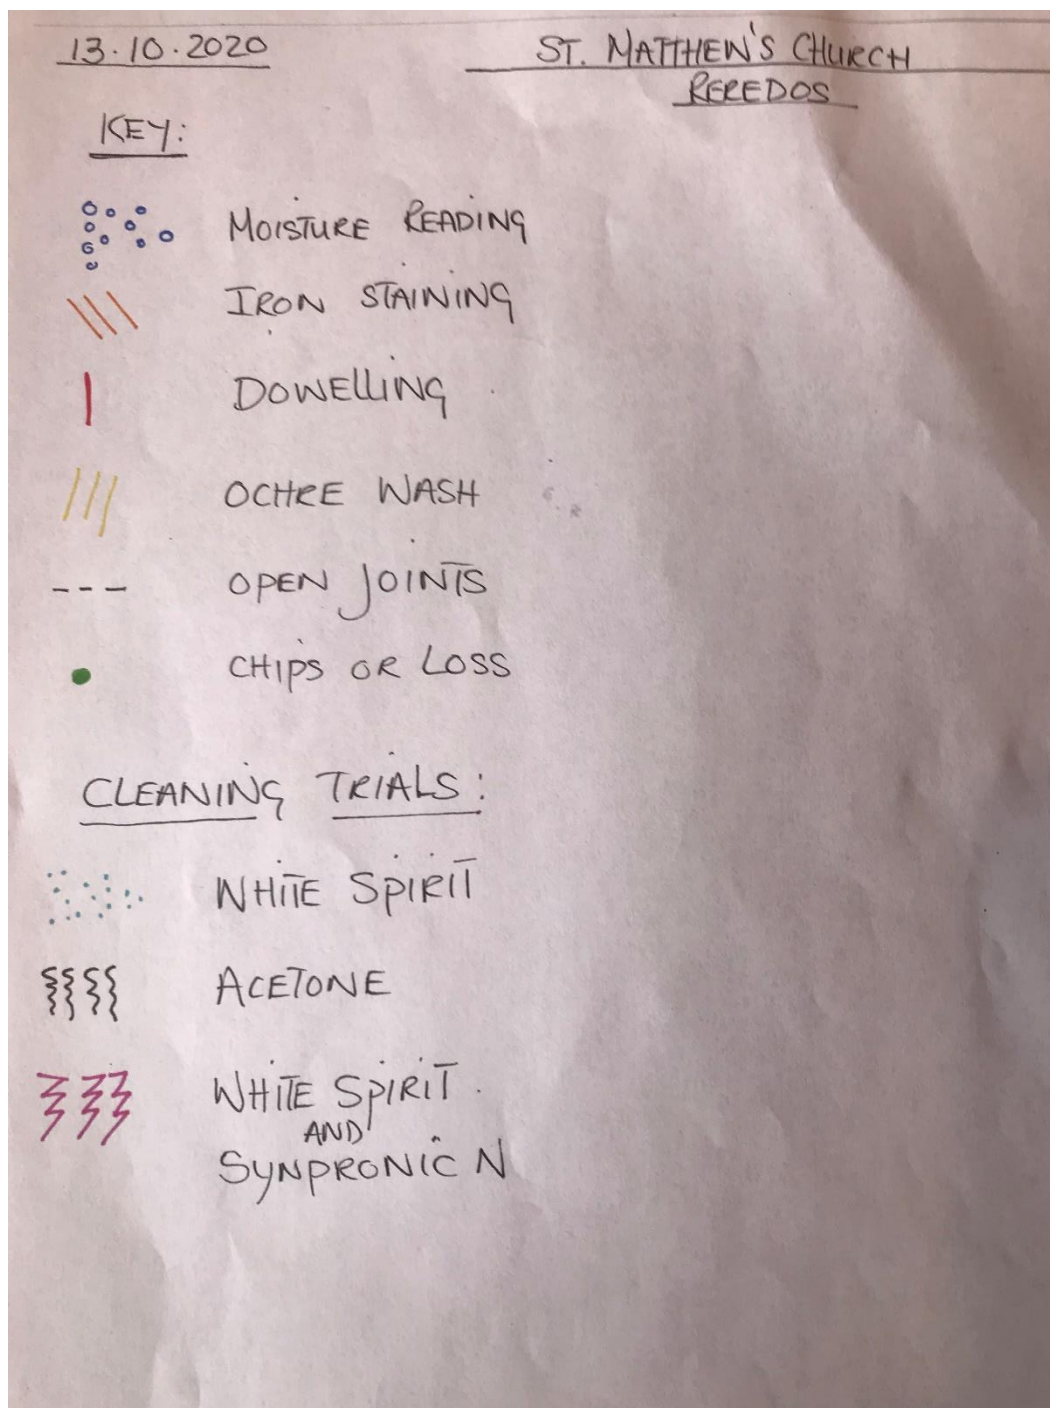 13.10.2020
ST. MATTHEW'S CHURCH
REREDOS
KEY:
MOISTURE READING
IRON STAINING
DOWELLING
OCHRE WASH
--- OPEN JOINTS
CHIPS OR LOSS
CLEANING TRIALS:
WHITE SPIRIT
ACETONE
WHITE SPIRIT
AND
SYNPRONIC N